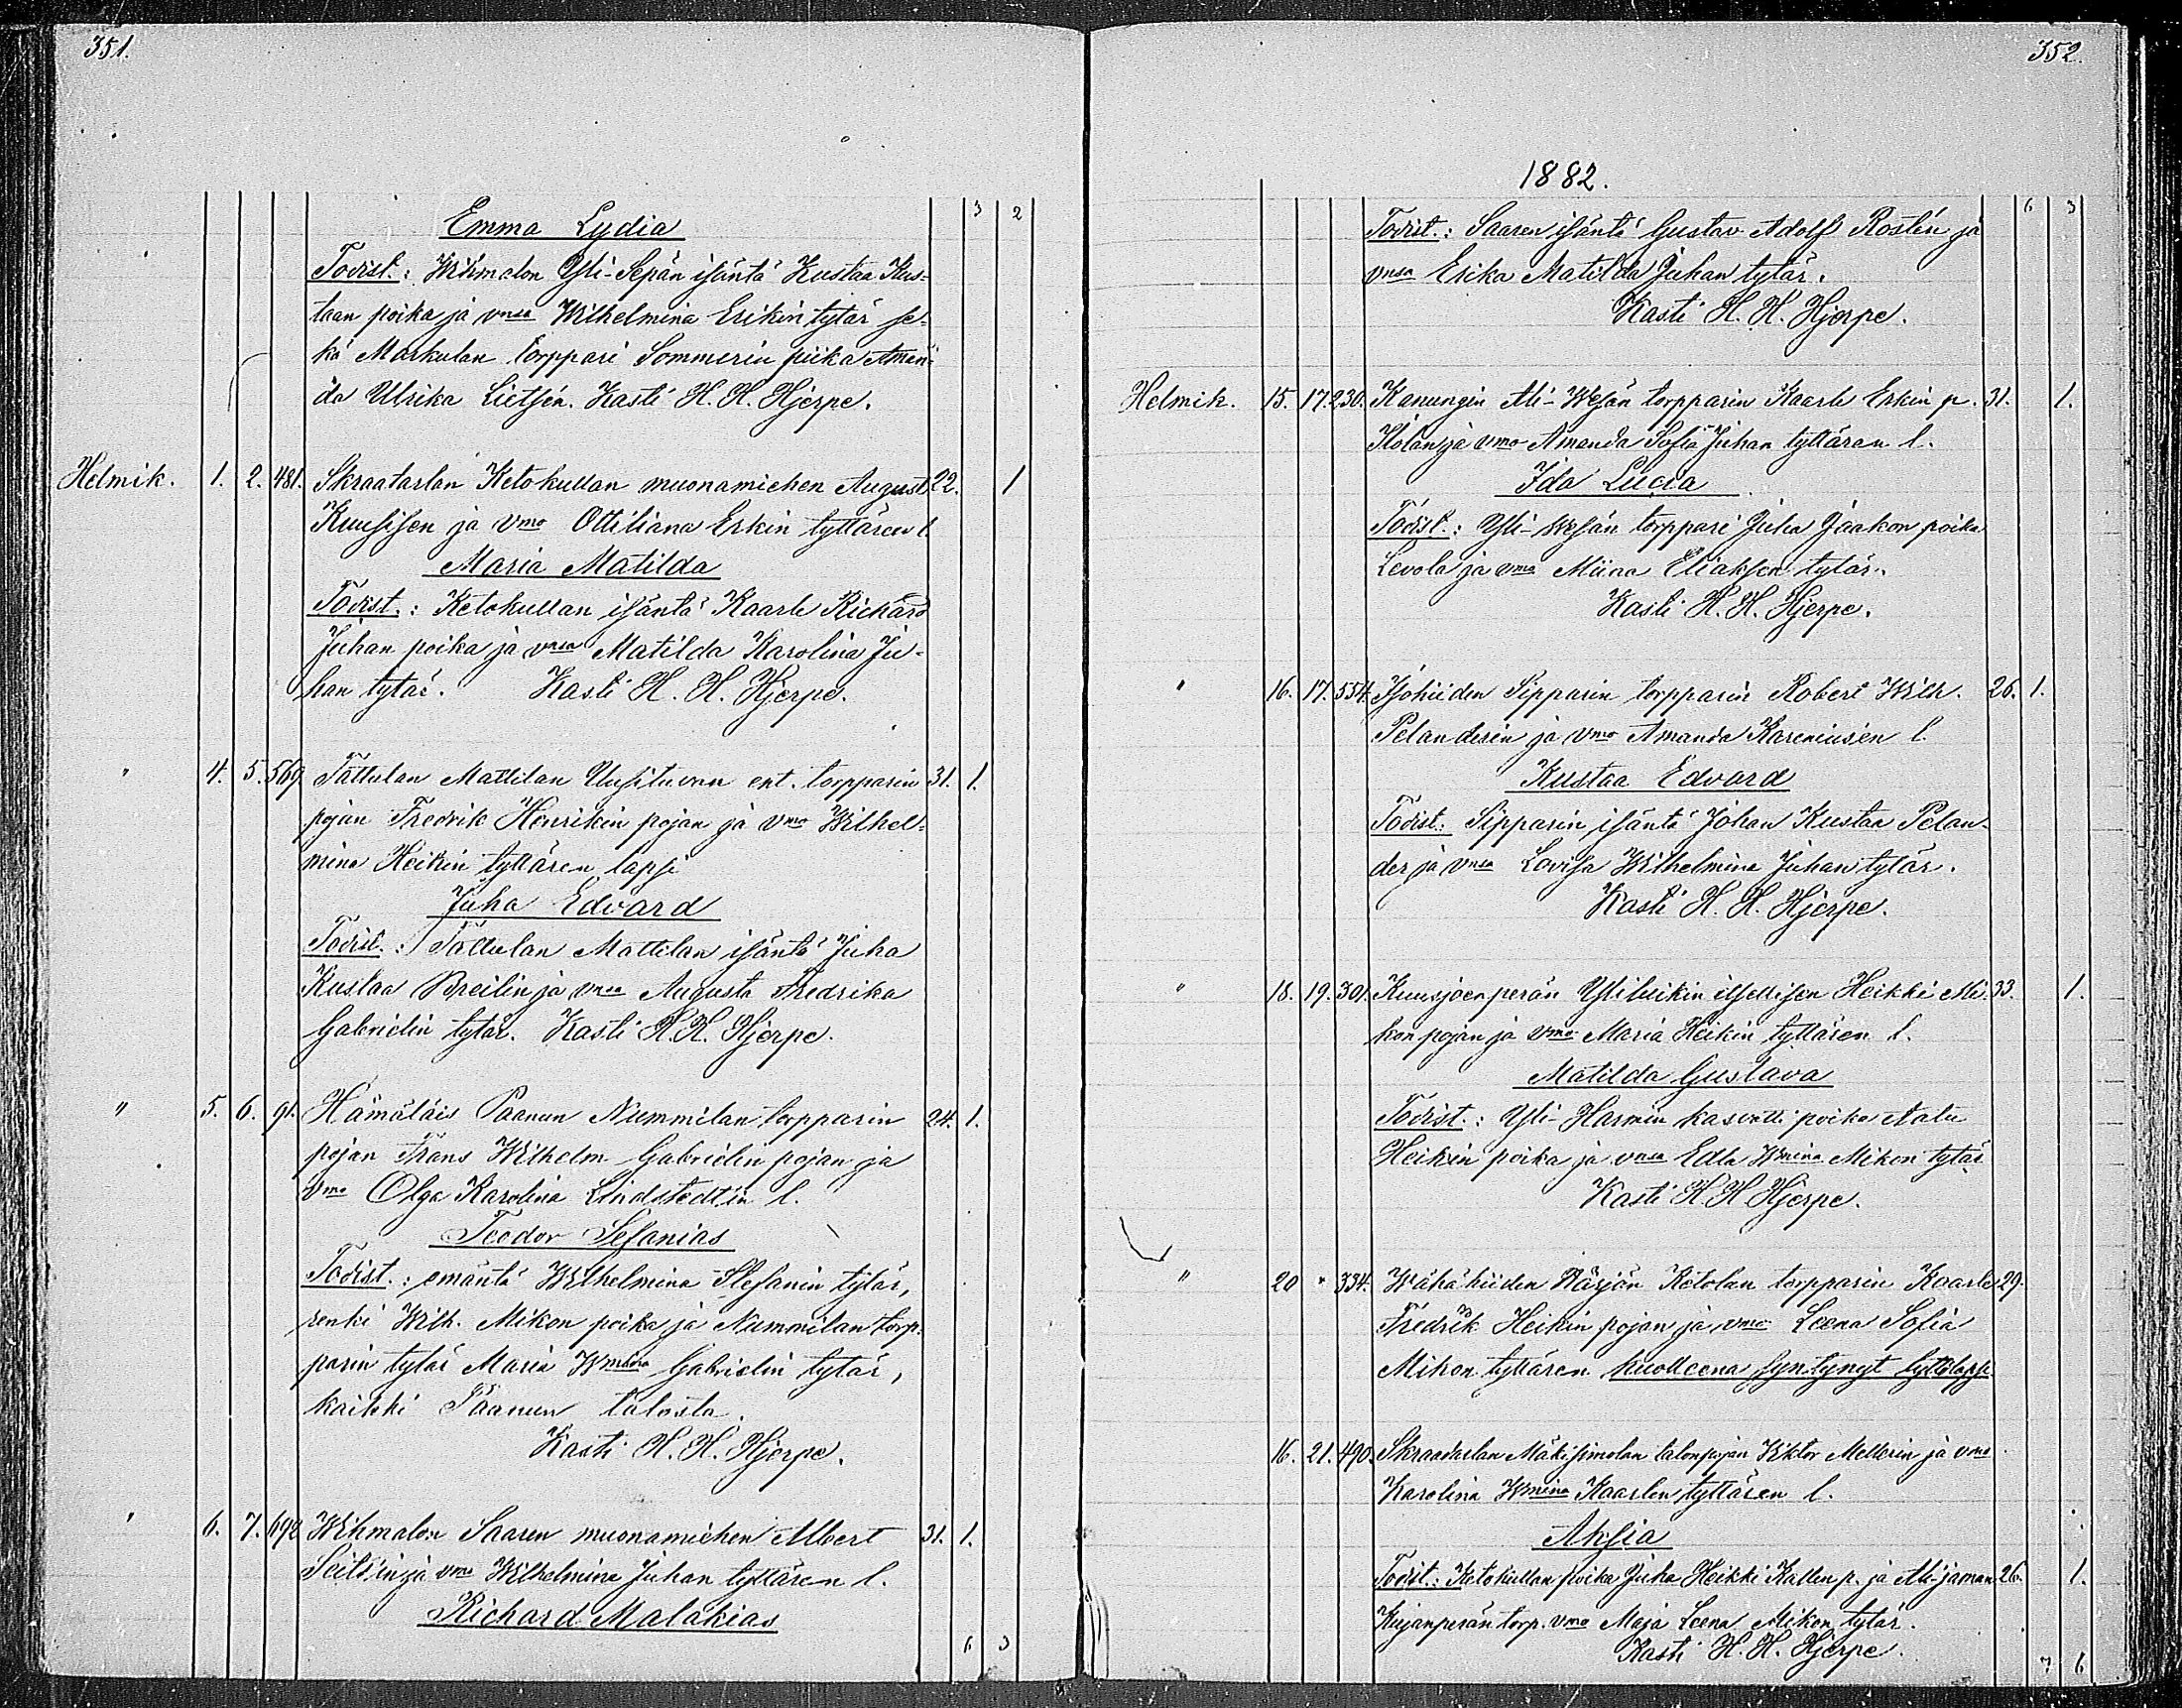 351.
3 2
Emma Lydia
Todist.: Wihmalon Yli-Sepän isäntä Kustaa Kus-
taan poika ja vnsa Wilhelmina Erikin tytär se-
kä Markulan torppari Sommerin piika Aman-
da Ulrika Lietsén. Kasti H. H. Hjerpe.
Helmik. 1. 2. 481. Skraatarlan Ketokullan muonamiehen August 22. 1
Kuusisen ja vmo Ottiliana Erkin tyttären l.
Maria Matilda
Todist.: Ketokullan isäntä Kaarle Richard
Juhan poika ja vnsa Matilda Karolina Ju-
han tytär. Kasti H. H. Hjerpe.
" 4. 5. 569 Tattulan Mattilan Uusituvan ent. torpparin 31. 1.
pojan Fredrik Henrikin pojan ja vmo Wilhel-
mina Heikin tyttären lapsi
Juha Edvard
Todist.: Tattulan Mattilan isäntä Juha
Kustaa Breilin ja vnsa Augusta Fredrika
Gabrielin tytär. Kasti H. H. Hjerpe.
" 5. 6. 91. Hämäläis Paanun Nummilan torpparin 24. 1.
pojan Frans Wilhelm Gabrielin pojan ja
vmo Olga Karolina Lindstedtin l.
Teodor Sefanias
Todist.: emäntä Wilhelmina Stefanin tytär,
renki Wilh. Mikon poika ja Nummilan torp-
parin tytär Maria Wmina Gabrielin tytär,
kaikki Paanun talosta.
Kasti H. H. Hjerpe.
" 6. 7. 692 Wihmalon Saaren muonamiehen Albert 31. 1.
ja vmo Wilhelmina Juhan tyttären l.
Richard Malakias
6 3
352.
1882.
6 3
Todist.: Saaren isäntä Gustav Adolf Rostén ja
vnsa Erika Matilda Juhan tytär.
Kasti H. H. Hjerpe.
Helmik. 15. 17. 230. Kanungin Ali-Wesän torpparin Kaarle Erkin p. 31. 1.
Ilolan ja vmo Amanda Sofia Juhan tyttären l.
Ida Lucia
Todist.: Yli-Wesän torppari Juha Jaakon poika
Levola ja vmo Miina Eliaksen tytär.
Kasti H. H. Hjerpe.
" 16. 17. 554. Isohiiden Sipparin torpparin Robert Wilh. 26. 1.
Pelanderin ja vmo Amanda Kareniusen l.
Kustaa Edvard
Todist.: Sipparin isäntä Johan Kustaa Pelan-
der ja vnsa Lovisa Wilhelmina Juhan tytär.
Kasti H. H. Hjerpe.
" 18. 19. 301. Kuusjoenperän Ylikuikin itsellisen Heikki Mi- 33. 1.
kon pojan ja vmo Maria Heikin tyttären l.
Matilda Gustava
Todist.: Yli-Harmin kasvatti poika Aatu
Heikin poika ja vnsa Edla Wmina Mikon tytär
Kasti H H Hjerpe.
" 20 " 334. Wähähiiden Wärjän Ketolan torpparin Kaarle 29.
Fredrik Heikin pojan ja vmo Leena Sofia
Mikon tyttären kuolleena syntynyt tyttölapsi.
16. 21. 490. Skraatarlan Mäkisimolan talonpojan Wiktor Mellerin ja vmo
Karolina Wmina Kaarlen tyttären l.
Aksia
Todist.: Ketokullan poika Juha Heikki Kallen p. ja Ali-jaman 26. 1.
Kujanperän torp. vmo Maja Leena Mikon tytär.
Kasti H. H. Hjerpe.
7 6